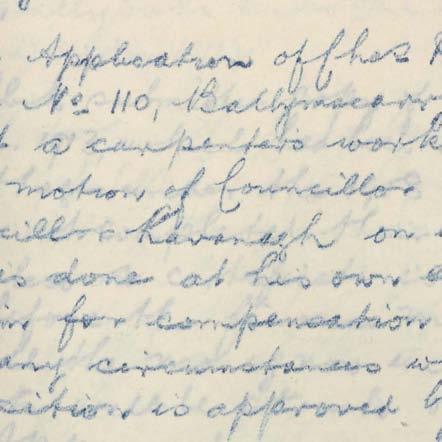 Application of Chas
No 110, Ballymacarr
a carpenters work
motion of Councillor
cillor Kavanagh on
is done at his own
for compensation
any circumstances
ition is approved